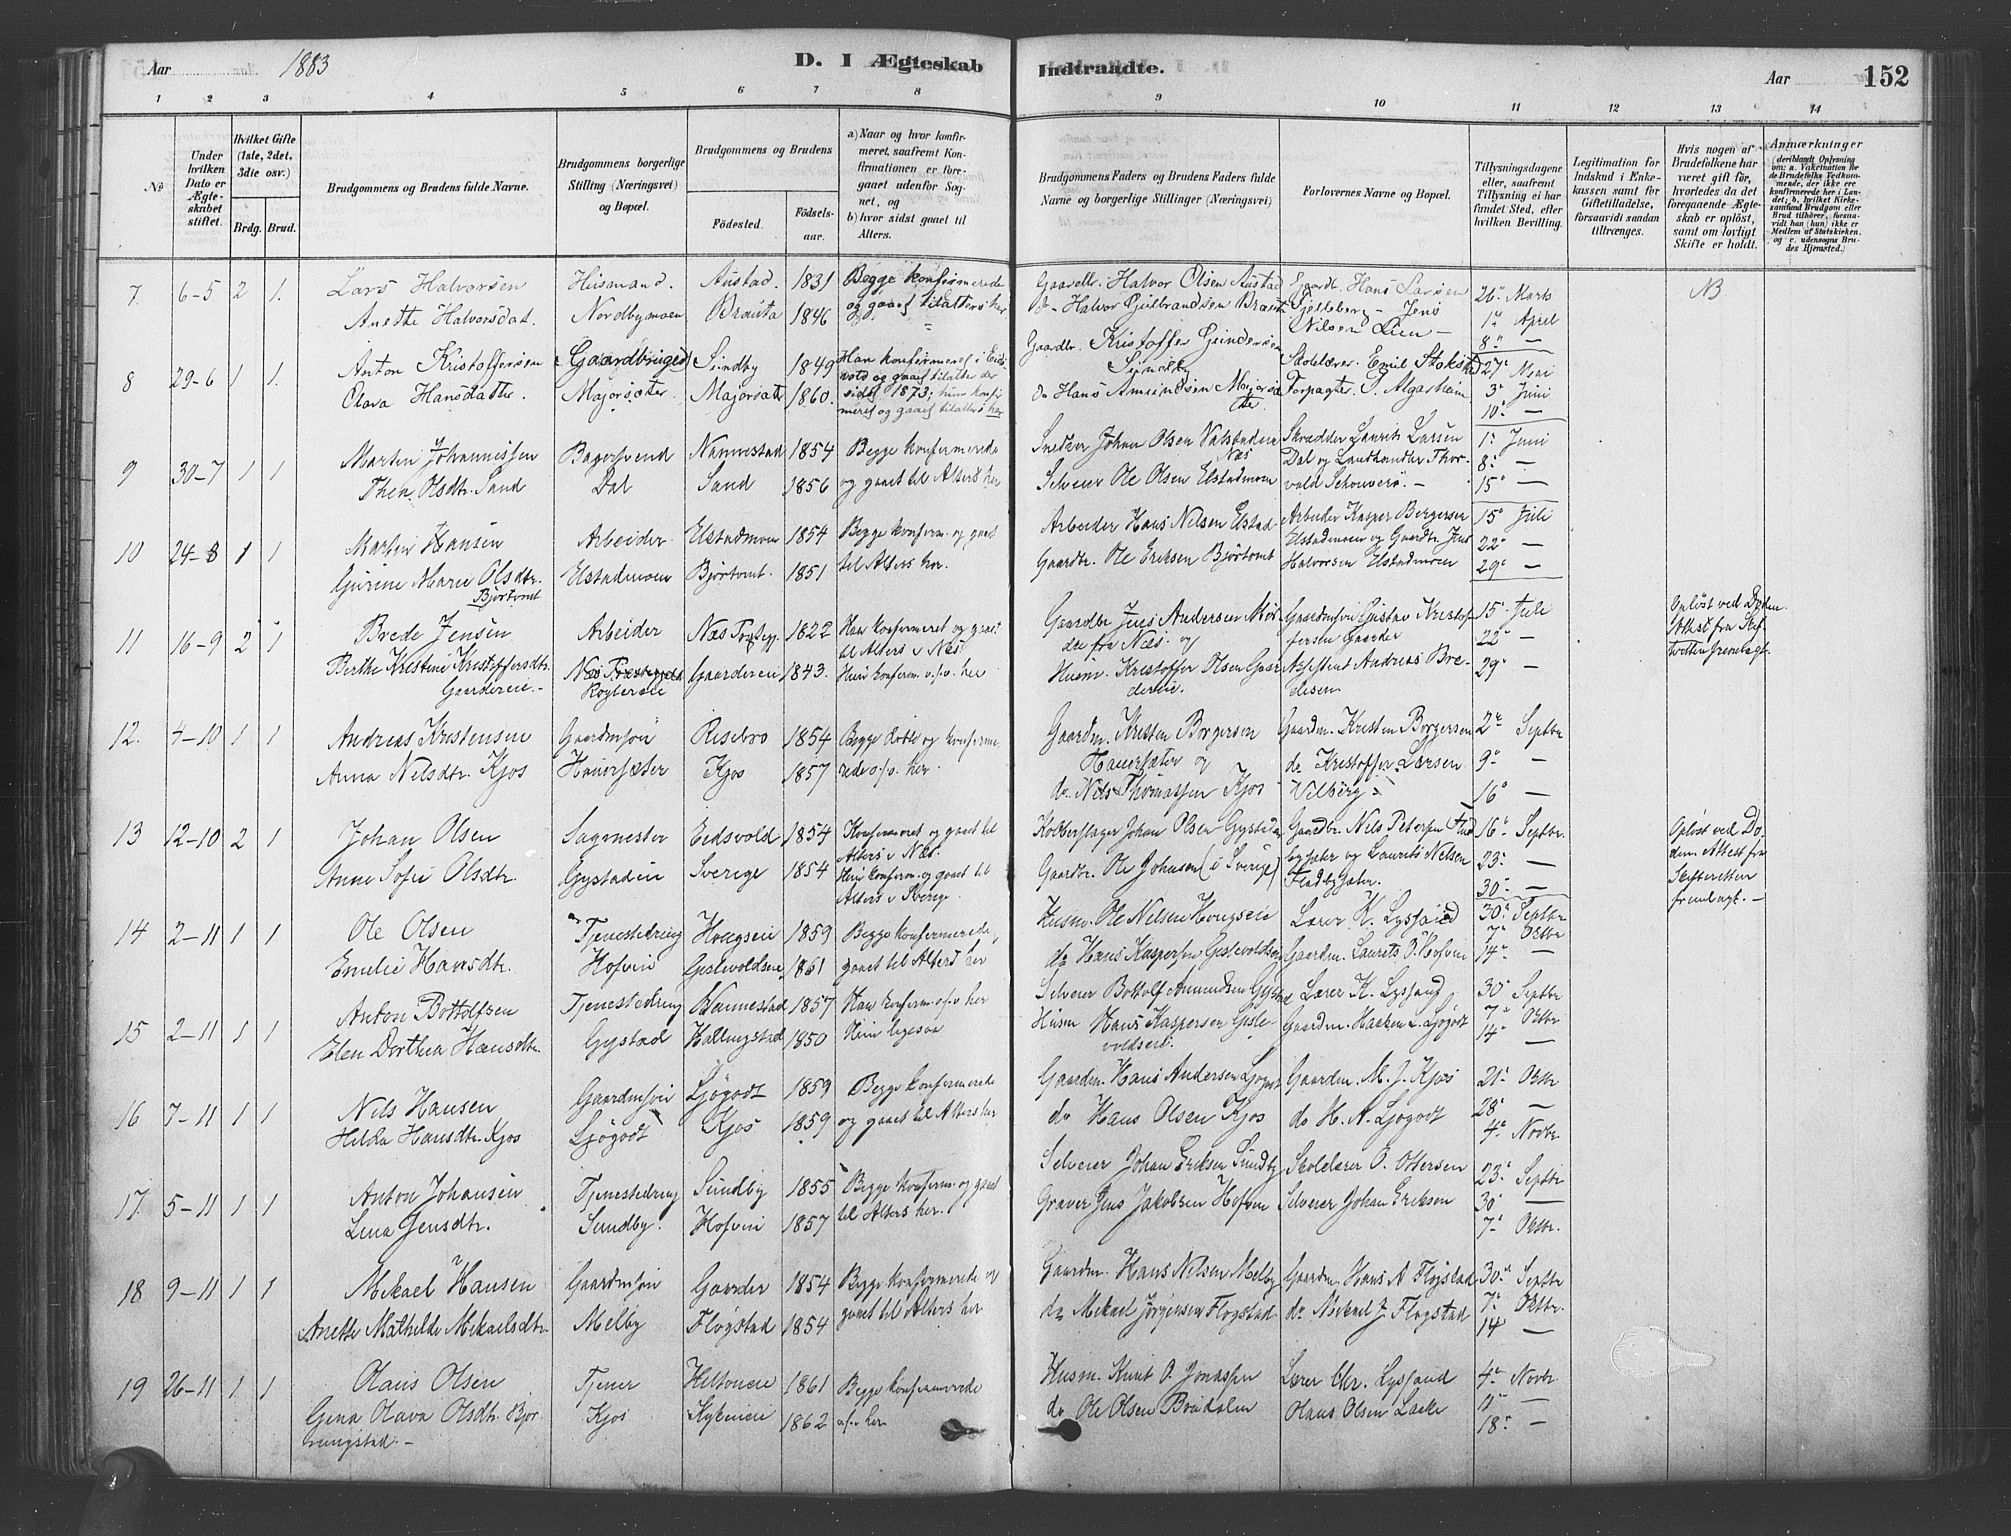 Aar 1883
D. I Ægteskab Indtraadte.
Aar 152
1 2 3 4 5 6 7 8 9 10 11 12 13 14
No
Under hvilken Dato er Ægteskabet stiftet.
Hvilket Gifte (1ste, 2det, 3die osv.)
Brdg. Brud.
Brudgommens og Brudens fulde Navne.
Brudgommens borgerlige Stilling (Næringsvei) og Bopæl.
Brudgommens og Brudens
Fødested. Fødselsaar.
a) Naar og hvor konfirmeret, saafremt Konfirmationen er foregaaet udenfor Sognet, og
b) hvor sidst gaaet til Alters.
Brudgommens Faders og Brudens Faders fulde Navne og borgerlige Stillinger (Næringsvei)
Forlovernes Navne og Bopæl.
Tillysningsdagene eller, saafremt Tillysning ei har fundet Sted, efter hvilken Bevilling.
Legitimation for Indskud i Enkekassen samt for Giftetilladelse, forsaavidt saadan tiltrænges.
Hvis nogen af Brudefolkene har været gift før, hvorledes da det foregaaende Ægteskab er opløst, samt om lovligt Skifte er holdt.
Anmærkninger
7. 6-5 2 1.
Lars Halvorsen
Anette Halvorsdat.
Husmand.
Nordbymoen
Austad. 1831
Brausta 1846
Begge konfirmerede
og gaaet tilalters her
Gaardbr. Halvor Olsen Austad
do Halvor Gulbrandsen
Hans Larsen
Jens
Nilsen Lien
26. Marts
1. April
8. —
NB
8 29-6 1 1.
Anton Kristoffersen
Olava Hansdatter
Majorsæter.
Sundby 1849
Majorsæt 1860.
Han konfirmeret i Eids
vold og gaaet tilalters der
sidst 1873; hun konfir
meret og gaaet tilalters her
Gaardbr. Kristoffer
Sundby
do Hans Amundsen
Skolelærer Emil
Forpagter S. Algarheim
27. Mai
3. Juni
10. —
9 30-7 1 1
Martin Johannessen
Thea Olsdtr. Sand
Bagersvend
Dal
Nannestad 1854
Sand 1856
Begge konfirmerede
og gaaet til Alters her
Snedker Johan Olsen
Næs
Selveier Ole Olsen Elstadmoen
Skrædder Laurits Larsen
Dal og Landhandler Thor-
vald
1. Juni
8. —
15. —
10 24-8 1 1
Martin Hansen
Gurine Marie Olsdtr.
Bjørtomt
Arbeider
Elstadmoen
Elstadmoen 1854
Bjørtomt. 1851
Begge konfirm. og gaaet
til Alters her.
Arbeider Hans Nilsen Elstad
Gaardbr. Ole Eriksen Bjørtomt
Arbeider Kasper Bergersen
Elstadmoen og Gaardbr. Jens
Halvorsen Elstadmoen
15. Juli
22. —
29. —
11 16-9 2 1
Brede Jensen
Berthe Kristine Kristoffersdtr.
Gaardereie.
Arbeider
Næs Præstegjeld
Næs Prstgj. 1822
Gaardereie 1843.
Han konfirmeret og gaaet
til Alters i Næs.
Hun konfirm. o.s.v. her
Gaardbr Jens Andersen
der fra Næs. og
Husm. Kristoffer Olsen Gaar
dereie.
Gaardmsøn Gustav Kristof
fersen Gaarder
Assistent Andreas Bre-
desen
15. Juli
22. —
29. —
Opløst ved Døden.
Attest fra Skif
teretten fremlagt.
12. 4-10 1 1
Andreas Kristensen
Anna Nilsdtr. Kjos
Gaardmsøn
Hauersæter
Risebro 1854
Kjos 1857
Begge døbte og konfirme
rede o.s.v. her.
Gaardm. Kristen Borgersen
Hauersæter og
do. Nils Thomassen Kjos
Gaardm. Kristen Borgersen
do. Kristoffer Larsen
Vilberg
2. Septbr
9. —
16. —
13 12-10 2 1
Johan Olsen
Anne Sofie Olsdtr.
Sagmester
Gystadeie
Eidsvold 1854
Sverige 1854
Konfirmeret og gaaet til
Alters i Næs.
Hun konfirm. og gaaet til
Alters i Sverige
Kobberslager Johan Olsen Gystad
Gaardbr. Ole Johnsen (i Sverige)
Gaardbr. Nils Petersen Flad
bysæter og Laurits Nilsen
Fladbysæter.
16. Septbr.
23. —
30. —
Opløst ved Dø-
den. Attest fra
Skifteretten
fremlagt. —
14 2-11 1 1
Ole Olsen
Emilie Hansdtr.
Tjenestedreng
Hofvin
Haugseie 1859
Gislevoldseie 1861
Begge konfirmerede,
gaaet til Alters her
Husm. Ole Nilsen Haugseie
do Hans Kaspersen Gislevoldseie
Lærer K. Lyssand
Gaardm. Laurits O. Hofvin
30. Septbr.
7. Oktbr
14. —
15 2-11 1 1
Anton Bottolfsen
Elen Dorthea Hansdtr.
Tjenestedreng
Gystad
Nannestad 1857
Kallungstad 1850
Han konfirm. o.s.v her
Hun ligesaa
Selveier Bottolf Amundsen Gystad
Husm Hans Kaspersen Gisle-
voldseie.
Lærer K. Lyssand
Gaardm. Haaken L. Ljøgodt
30. Septbr
7. Oktbr
14. —
16 7-11 1 1
Nils Hansen
Hilda Hansdtr. Kjos
Gaardmsøn
Ljøgodt
Ljøgodt 1859
Kjos 1859
Begge konfirmerede
og gaaet til Alters her
Gaardm. Hans Andersen Ljøgodt
do Hans Olsen Kjos
Gaardm. M. J. Kjos
do H. A. Ljøgodt
21. Oktbr
28. —
4. Novbr
17. 5-11 1 1
Anton Johansen
Lina Jensdtr.
Tjenestedreng
Sundby.
Sundby 1855
Hofvin 1857
Begge konfirm. og gaaet
til Alters her.
Selveier Johan Eriksen Sundby
Graver Jens Jakobsen Hofvin
Skolelærer O. Ottersen
Selveier Johan Eriksen
23. Septbr
30. —
7. Oktbr.
18 9-11 1 1
Mikael Hansen
Anette Mathilde Mikaelsdtr.
Gaardmsøn
Melby
Gaarder 1854
Flogstad 1854
Begge konfirmerede og
gaaet til Alters her
Gaardm. Hans Nilsen Melby
do Mikael Jørgensen Flogstad
Gaardm. Hans A Flogstad
do. Mikael J. Flogstad
30. Septbr
7. Oktbr.
14 —
19 26-11 1 1
Olaus Olsen
Gina Olava Olsdtr. Bjør
nungstad. —
Tjener
Kjos
Heltoneie 1861
1862
Begge konfirmerede
o.s.v. her
Husm. Knut O. Jonassen
do Ole Olsen Brudalen
Lærer Chr. Lyssand
Olaus Olsen Lake
4. Novbr
11 —
18. —